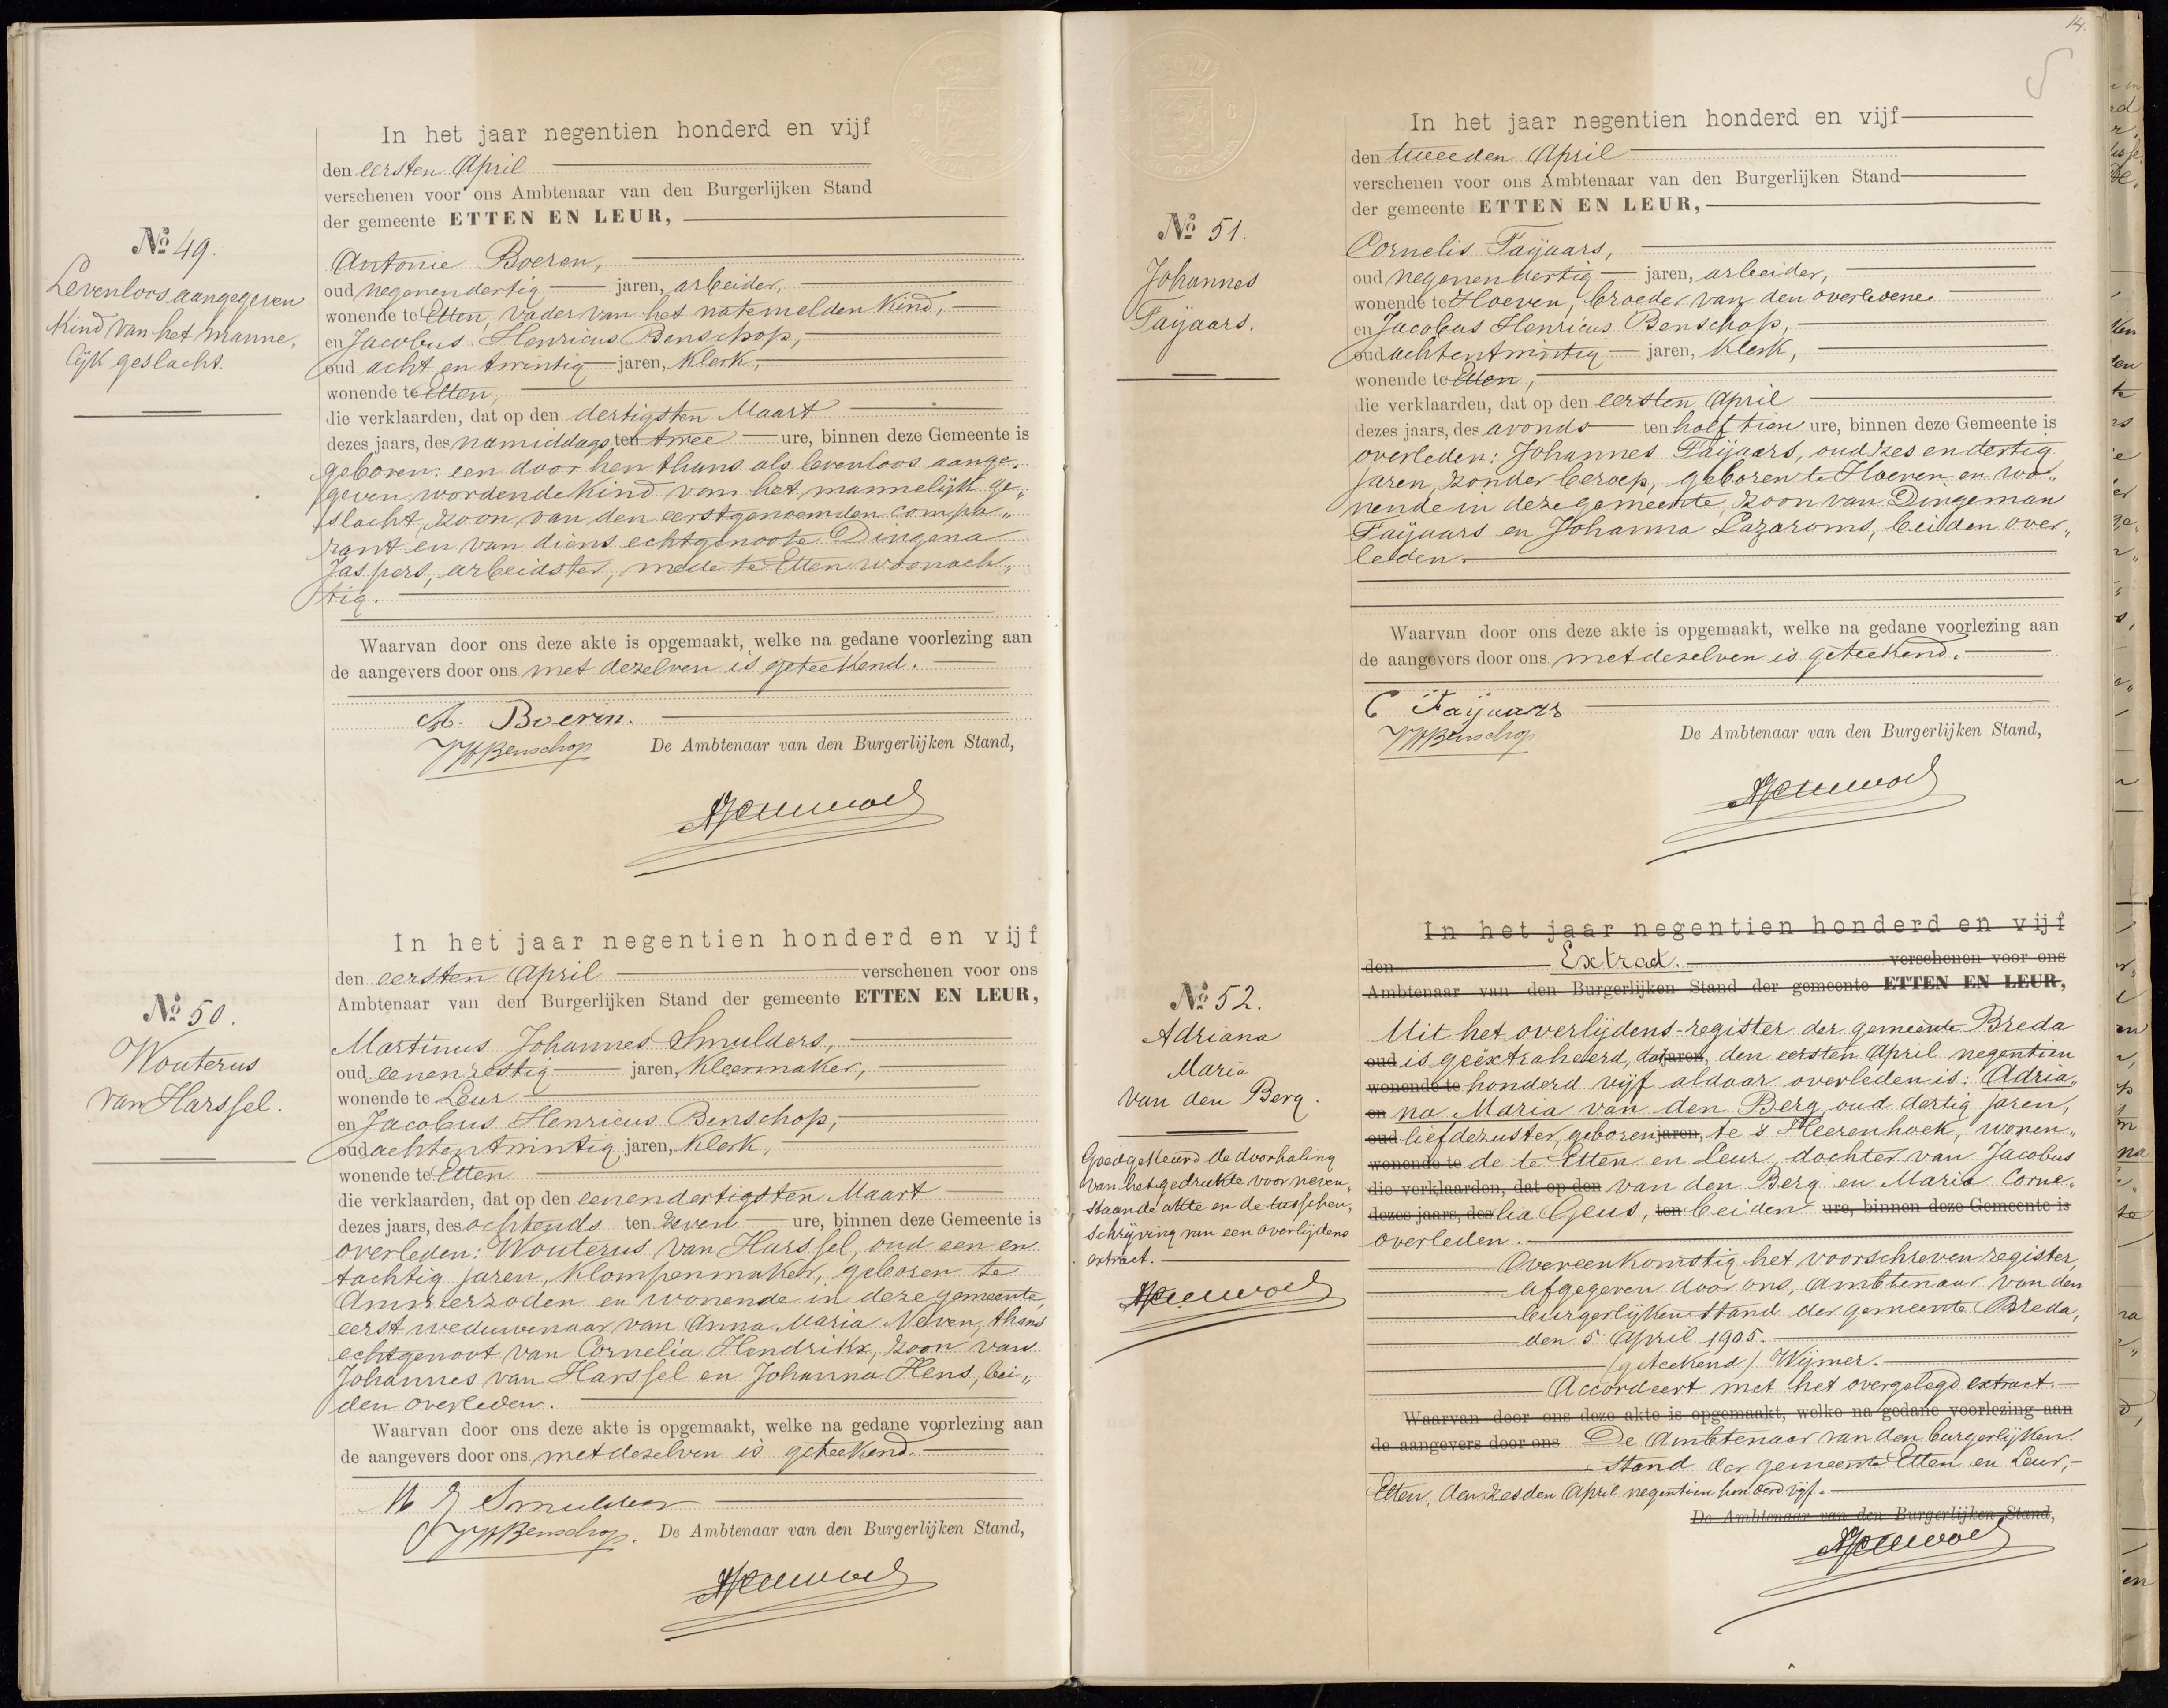 In het jaar negentien honderd en vijf
den eersten April
verschenen voor ons Ambtenaar van den Burgerlijken Stand
der gemeente ETTEN EN LEUR,
No 49.
Levenloos aangegeven
kind van het manne„
lijk geslacht.
Antonie Boeren,
oud negenendertig jaren, arbeider,
wonende te Etten, vader van het natemelden kind,
en Jacobus Henricus Benschop,
oud acht en twintig jaren, klerk,
wonende te Etten,
die verklaarden, dat op den dertigsten Maart
dezes jaars, des namiddags ten twee ure, binnen deze Gemeente is
geboren: een door hen thans als levenloos aange„
geven wordende kind van het mannelijk ge„
slacht, zoon van den eerstgenoemden compa„
rant en van diens echtgenoote Dingena
Jaspers, arbeidster, mede te Etten woonach„
tig.
Waarvan door ons deze akte is opgemaakt, welke na gedane voorlezing aan
de aangevers door ons met dezelven is geteekend.
A. Boeren.
JHBenschop De Ambtenaar van den Burgerlijken Stand,
In het jaar negentien honderd en vijf
den eersten April verschenen voor ons
Ambtenaar van den Burgerlijken Stand der gemeente ETTEN EN LEUR,
No 50.
Wouterus
van Harssel.
Martinus Johannes Smulders,
oud eenenzestig jaren, kleermaker,
wonende te Leur
en Jacobus Henricus Benschop,
oud achtentwintig jaren, klerk,
wonende te Etten
die verklaarden, dat op den eenendertigsten Maart
dezes jaars, des ochtends ten zeven ure, binnen deze Gemeente is
overleden: Wouterus van Harssel, oud een en
tachtig jaren, klompenmaker, geboren te
Ammerzoden en wonende in deze gemeente,
eerst weduwenaar van Anna Maria Neven, thans
echtgenoot van Cornelia Hendrikx, zoon van
Johannes van Harssel en Johanna Hens, bei„
den overleden.
Waarvan door ons deze akte is opgemaakt, welke na gedane voorlezing aan
de aangevers door ons met dezelven is geteekend.
M J Smulders
JHBenschop. De Ambtenaar van den Burgerlijken Stand,
14.
In het jaar negentien honderd en vijf
den tweeden April
verschenen voor ons Ambtenaar van den Burgerlijken Stand
der gemeente ETTEN EN LEUR,
No 51.
Johannes
Faijaars.
Cornelis Faijaars,
oud negenendertig jaren, arbeider,
wonende te Hoeven, broeder van den overledene
en Jacobus Henricus Benschop,
oud achtentwintig jaren, klerk,
wonende te Etten,
die verklaarden, dat op den eersten April
dezes jaars, des avonds ten half tien ure, binnen deze Gemeente is
overleden: Johannes Faijaars, oud zes en dertig
jaren, zonder beroep, geboren te Hoeven en wo„
nende in deze gemeente, zoon van Dingeman
Faijaars en Johanna Lazaroms, beiden over„
leden.
Waarvan door ons deze akte is opgemaakt, welke na gedane voorlezing aan
de aangevers door ons met dezelven is geteekend.
C Faijaars
JHBenschop De Ambtenaar van den Burgerlijken Stand,
In het jaar negentien honderd en vijf
den Extract. verschenen voor ons
Ambtenaar van den Burgerlijken Stand der gemeente ETTEN EN LEUR,
No 52.
Adriana
Maria
van den Berg.
Goedgekeurd de doorhaling
van het gedrukte voor neven„
staande akte en de tusschen„
schrijving van een overlijdens
extract.
Uit het overlijdens-register der gemeente Breda
oud is geëxtraheerd, dat jaren, den eersten April negentien
wonende te honderd vijf aldaar overleden is: Adria„
en na Maria van den Berg oud dertig jaren,
oud liefdezuster, geboren jaren, te 's Heerenhoek, wonen„
wonende te de te Etten en Leur, dochter van Jacobus
die verklaarden, dat op den van den Berg en Maria Corne„
dezes jaars, des lia Geus, ten beiden ure, binnen deze Gemeente is
overleden.
Overeenkomstig het voorschreven register,
afgegeven door ons, ambtenaar van den
burgerlijken stand der gemeente Breda,
den 5 April 1905.
(geteekend) Wijmer.
Accordeert met het overgelegd extract.
Waarvan door ons deze akte is opgemaakt, welke na gedane voorlezing aan
de aangevers door ons De Ambtenaar van den burgerlijken
stand der gemeente Etten en Leur,
Etten, den zesden April negentien honderd vijf.
De Ambtenaar van den Burgerlijken Stand,